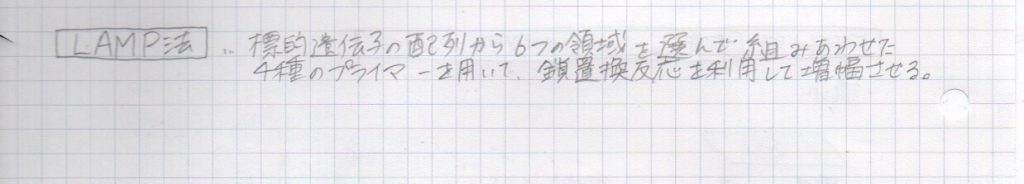 LAMP法 ‥ 標的遺伝子の配列から6つの領域を選んで組みあわせた
4種のプライマーを用いて、鎖置換反応を利用して増幅させる。